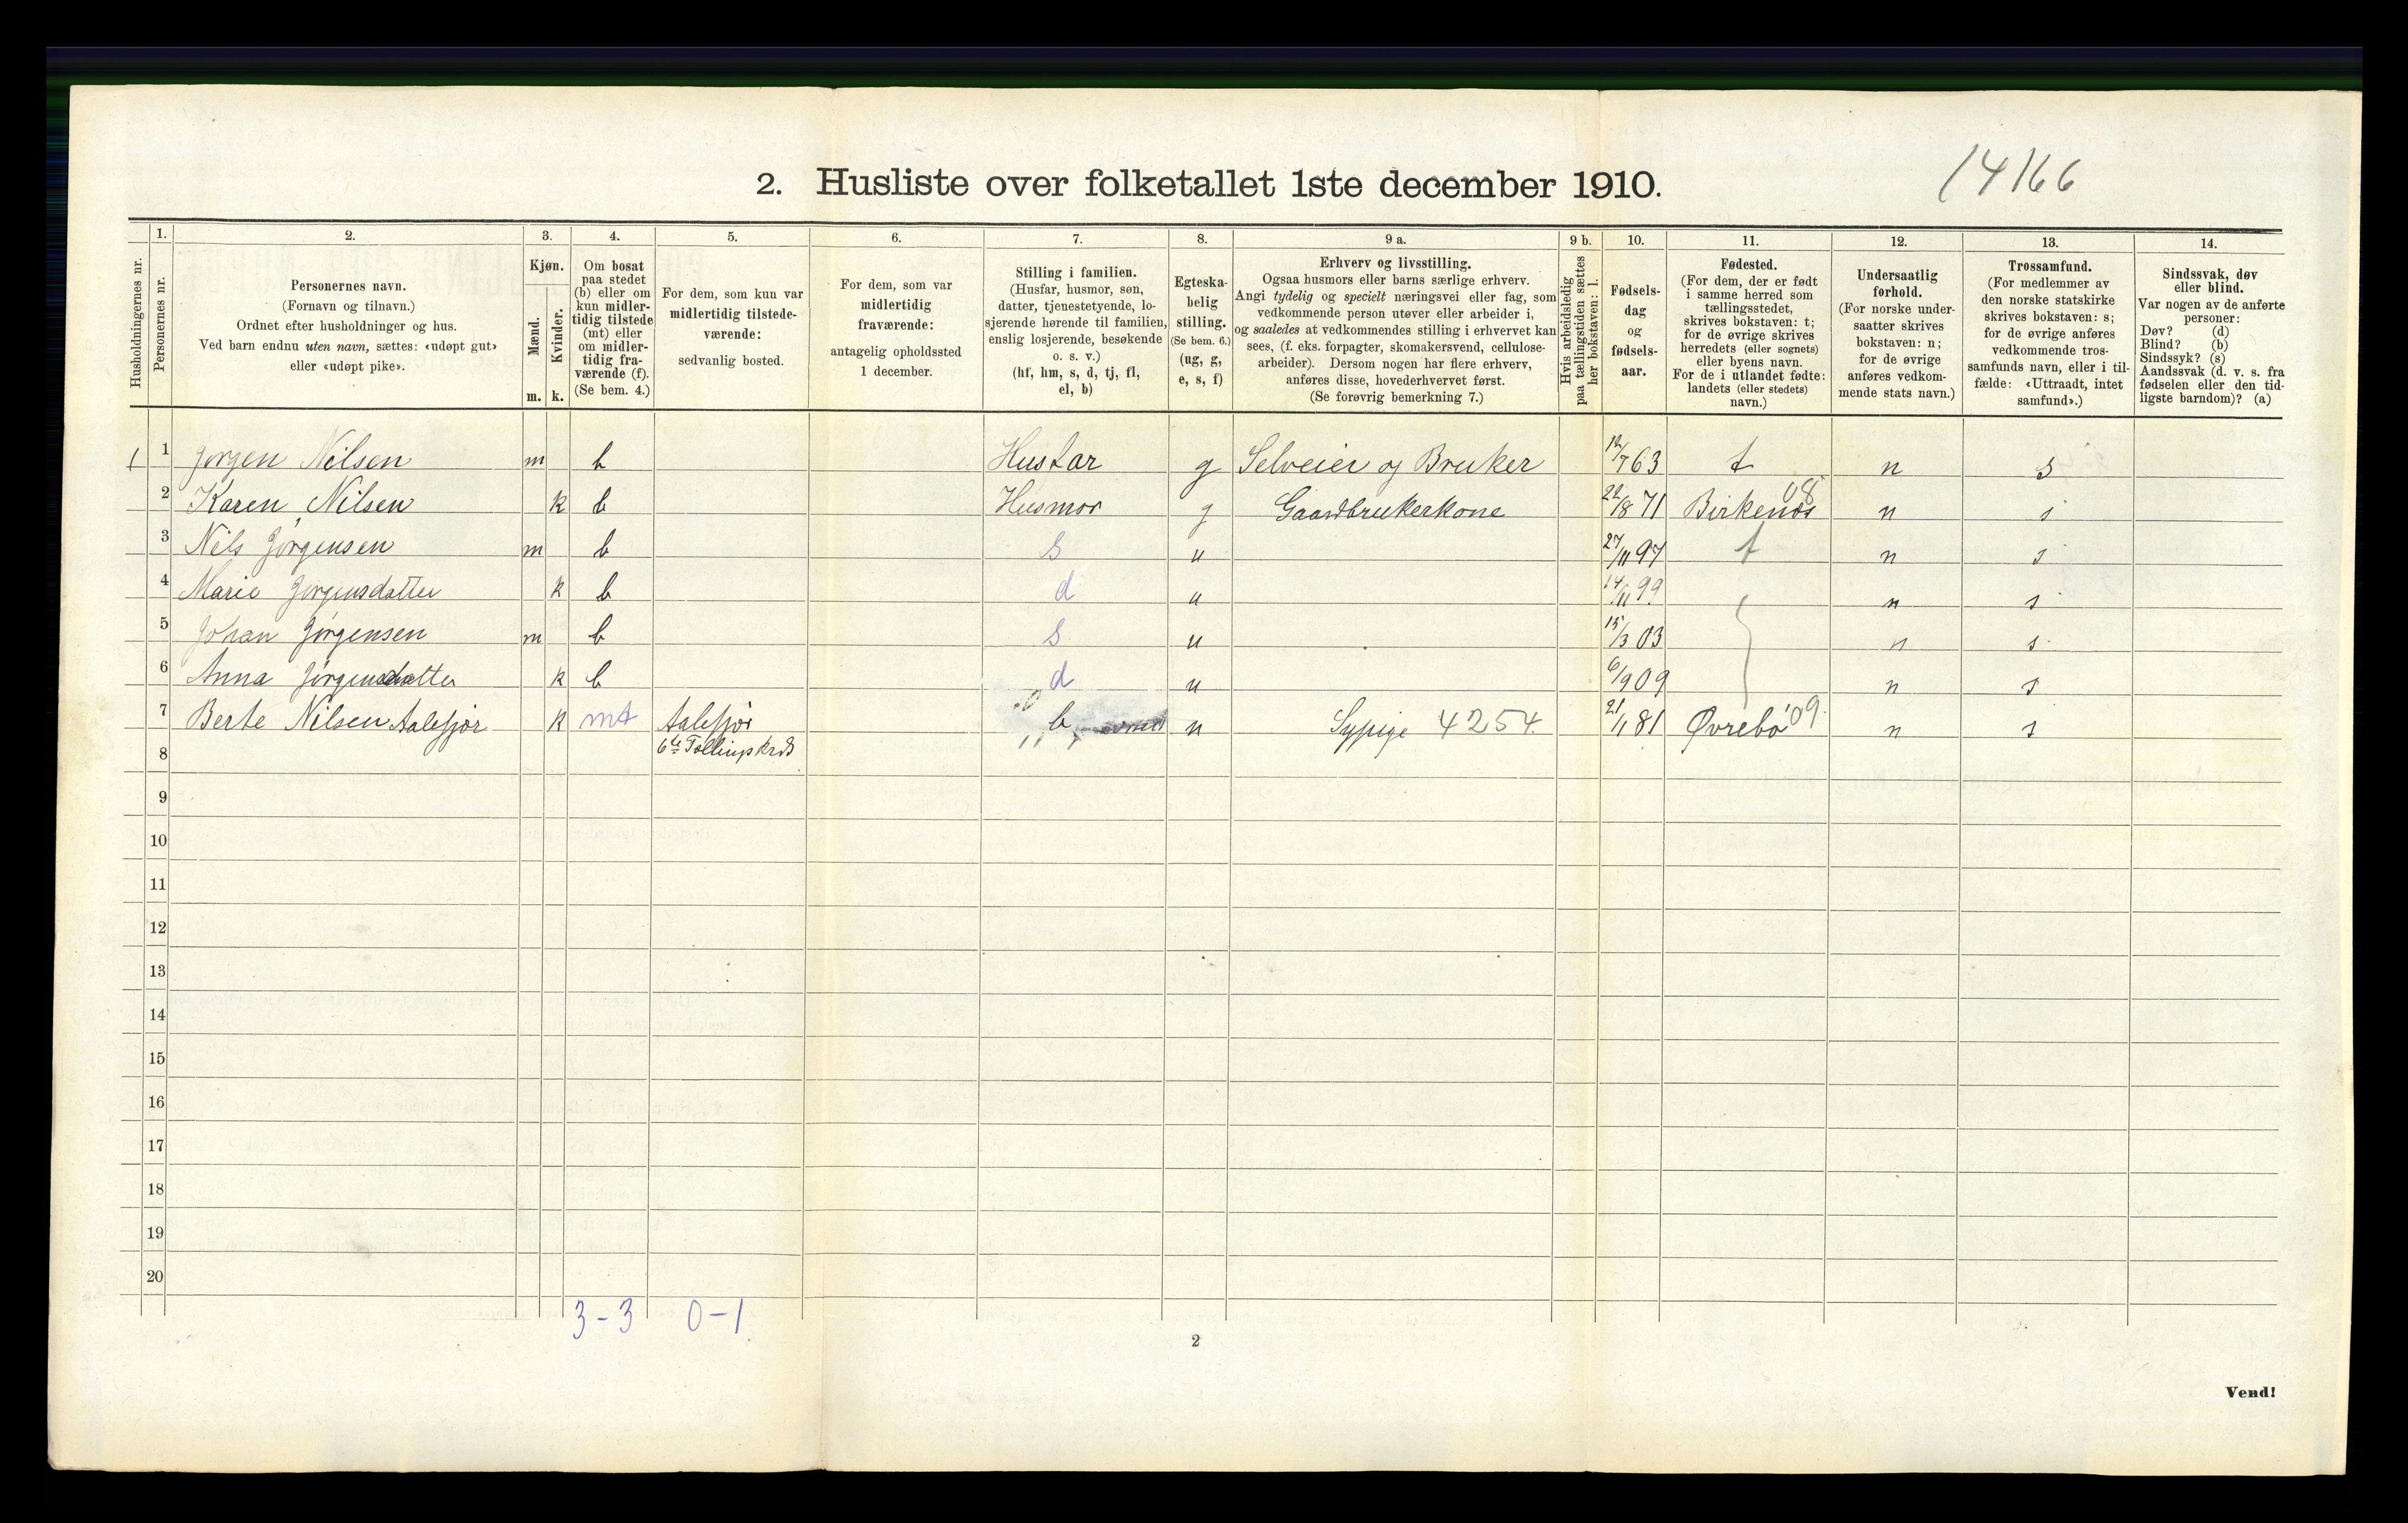 14166
2. Husliste over folketallet 1ste december 1910.
Husholdningernes nr.
1.
Personernes nr.
2.
Personernes navn.
(Fornavn og tilnavn.)
Ordnet efter husholdninger og hus.
Ved barn endnu uten navn, sættes: «udøpt gut»
eller «udøpt pike».
3.
Kjøn.
Mænd.
Kvinder.
m. k.
4.
Om bosat
paa stedet
(b) eller om
kun midler-
tidig tilstede
(mt) eller
om midler-
tidig fra-
værende (f).
(Se bem. 4.)
5.
For dem, som kun var
midlertidig tilstede-
værende:
sedvanlig bosted.
6.
For dem, som var
midlertidig
fraværende:
antagelig opholdssted
1 december.
7.
Stilling i familien.
(Husfar, husmor, søn,
datter, tjenestetyende, lo-
sjerende hørende til familien,
enslig losjerende, besøkende
o. s. v.)
(hf, hm, s, d, tj, fl,
el, b)
8.
Egteska-
belig
stilling.
(Se bem. 6.)
(ug, g,
e, s, f)
9 a.
Erhverv og livsstilling.
Ogsaa husmors eller barns særlige erhverv.
Angi tydelig og specielt næringsvei eller fag, som
vedkommende person utøver eller arbeider i,
og saaledes at vedkommendes stilling i erhvervet kan
sees, (f. eks. forpagter, skomakersvend, cellulose-
arbeider). Dersom nogen har flere erhverv,
anføres disse, hovederhvervet først.
(Se forøvrig bemerkning 7.)
9 b.
Hvis arbeidsledig
paa tællingstiden sættes
her bokstaven: l.
10.
Fødsels-
dag
og
fødsels-
aar.
11.
Fødested.
(For dem, der er født
i samme herred som
tællingsstedet,
skrives bokstaven: t;
for de øvrige skrives
herredets (eller sognets)
eller byens navn.
For de i utlandet fødte:
landets (eller stedets)
navn.)
12.
Undersaatlig
forhold.
(For norske under-
saatter skrives
bokstaven: n;
for de øvrige
anføres vedkom-
mende stats navn.)
13.
Trossamfund.
(For medlemmer av
den norske statskirke
skrives bokstaven: s;
for de øvrige anføres
vedkommende tros-
samfunds navn, eller i til-
fælde: «Uttraadt, intet
samfund».)
14.
Sindssvak, døv
eller blind.
Var nogen av de anførte
personer:
Døv? (d)
Blind? (b)
Sindssyk? (s)
Aandssvak (d. v. s. fra
fødselen eller den tid-
ligste barndom)? (a)
1 1 Jørgen Nilsen m b Husfar g Selveier og Bruker 12/7 63 t n s
2 Karen Nilsen k b Husmor g Gaardbrukerkone 22/8 71 Birkenæs 08 n s
3 Nils Jørgensen m b s u 27/11 97 t n s
4 Marie Jørgensdatter k b d u 14/11 99 n s
5 Johan Jørgensen m b s u 15/3 03 n s
6 Anna Jørgensdatter k b d u 6/9 09 n s
7 Berte Nilsen Aalefjør k mt Aalefjør b u Sypige 4254 21/1 81 Øvrebø 09 n s
6te Tællingskrds
8
9
10
11
12
13
14
15
16
17
18
19
20
3-3 0-1
2
Vend!